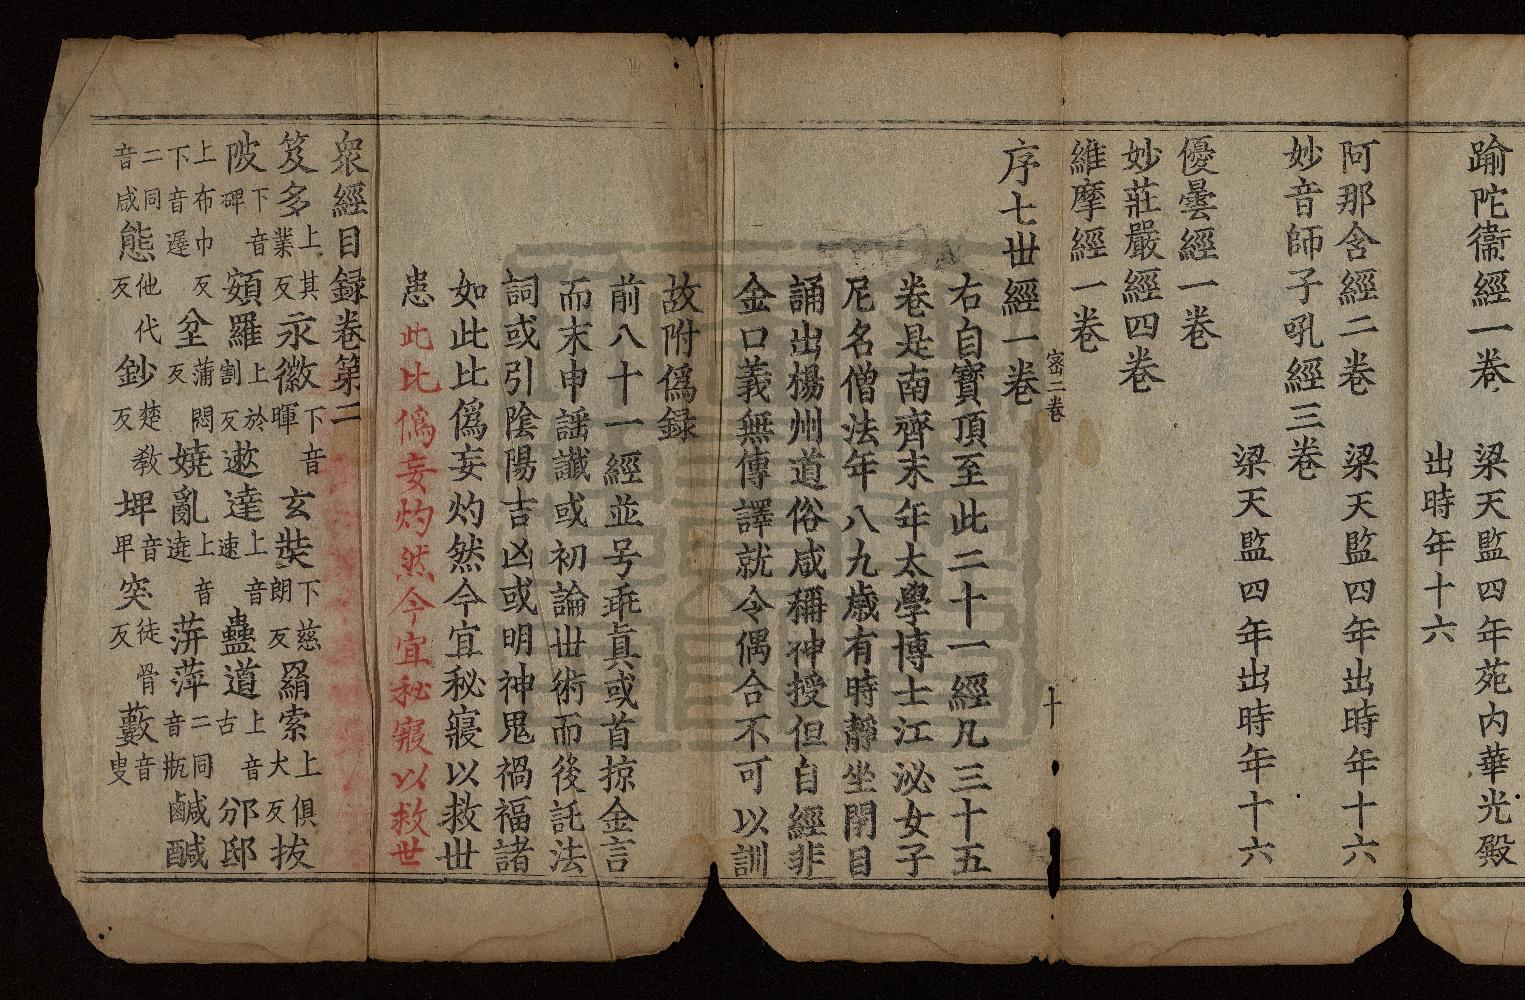 踰陀衞經一卷　梁天監四年苑内華光殿
出時年十六
阿那含經二卷　梁天監四年出時年十六
妙音師子吼經三卷
梁天監四年出時年十六
優曇經一卷
妙莊嚴經四卷
維摩經一卷
序七世經一卷
宻二卷　十
右自寳頂至此二十一經凡三十五
卷是南齊末年太學博士江泌女子
尼名僧法年八九歲有時靜坐閉目
誦出楊州道俗咸稱神授但自經非
金口義無傳譯就令偶合不可以訓
故附僞録
前八十一經並号乖眞或首掠金言
而末申謡讖或初論世術而後託法
詞或引陰陽吉凶或明神鬼禍福諸
如此比僞妄灼然今宜秘寢以救世
患此比僞妄灼然今宜秘寢以救世
衆經目録卷第二
笈多上其業反永徽下音暉玄奘下慈朗反羂索上俱犬反拔
陂下音碑頞羅上於割反遬達上音速蠱道上音古邠邸
上布巾反下音遅坌蒲悶反嬈亂上音遶荓萍二同音瓶鹹醎
二同音咸態他代反鈔楚教反埤音畀突徒骨反藪音叟